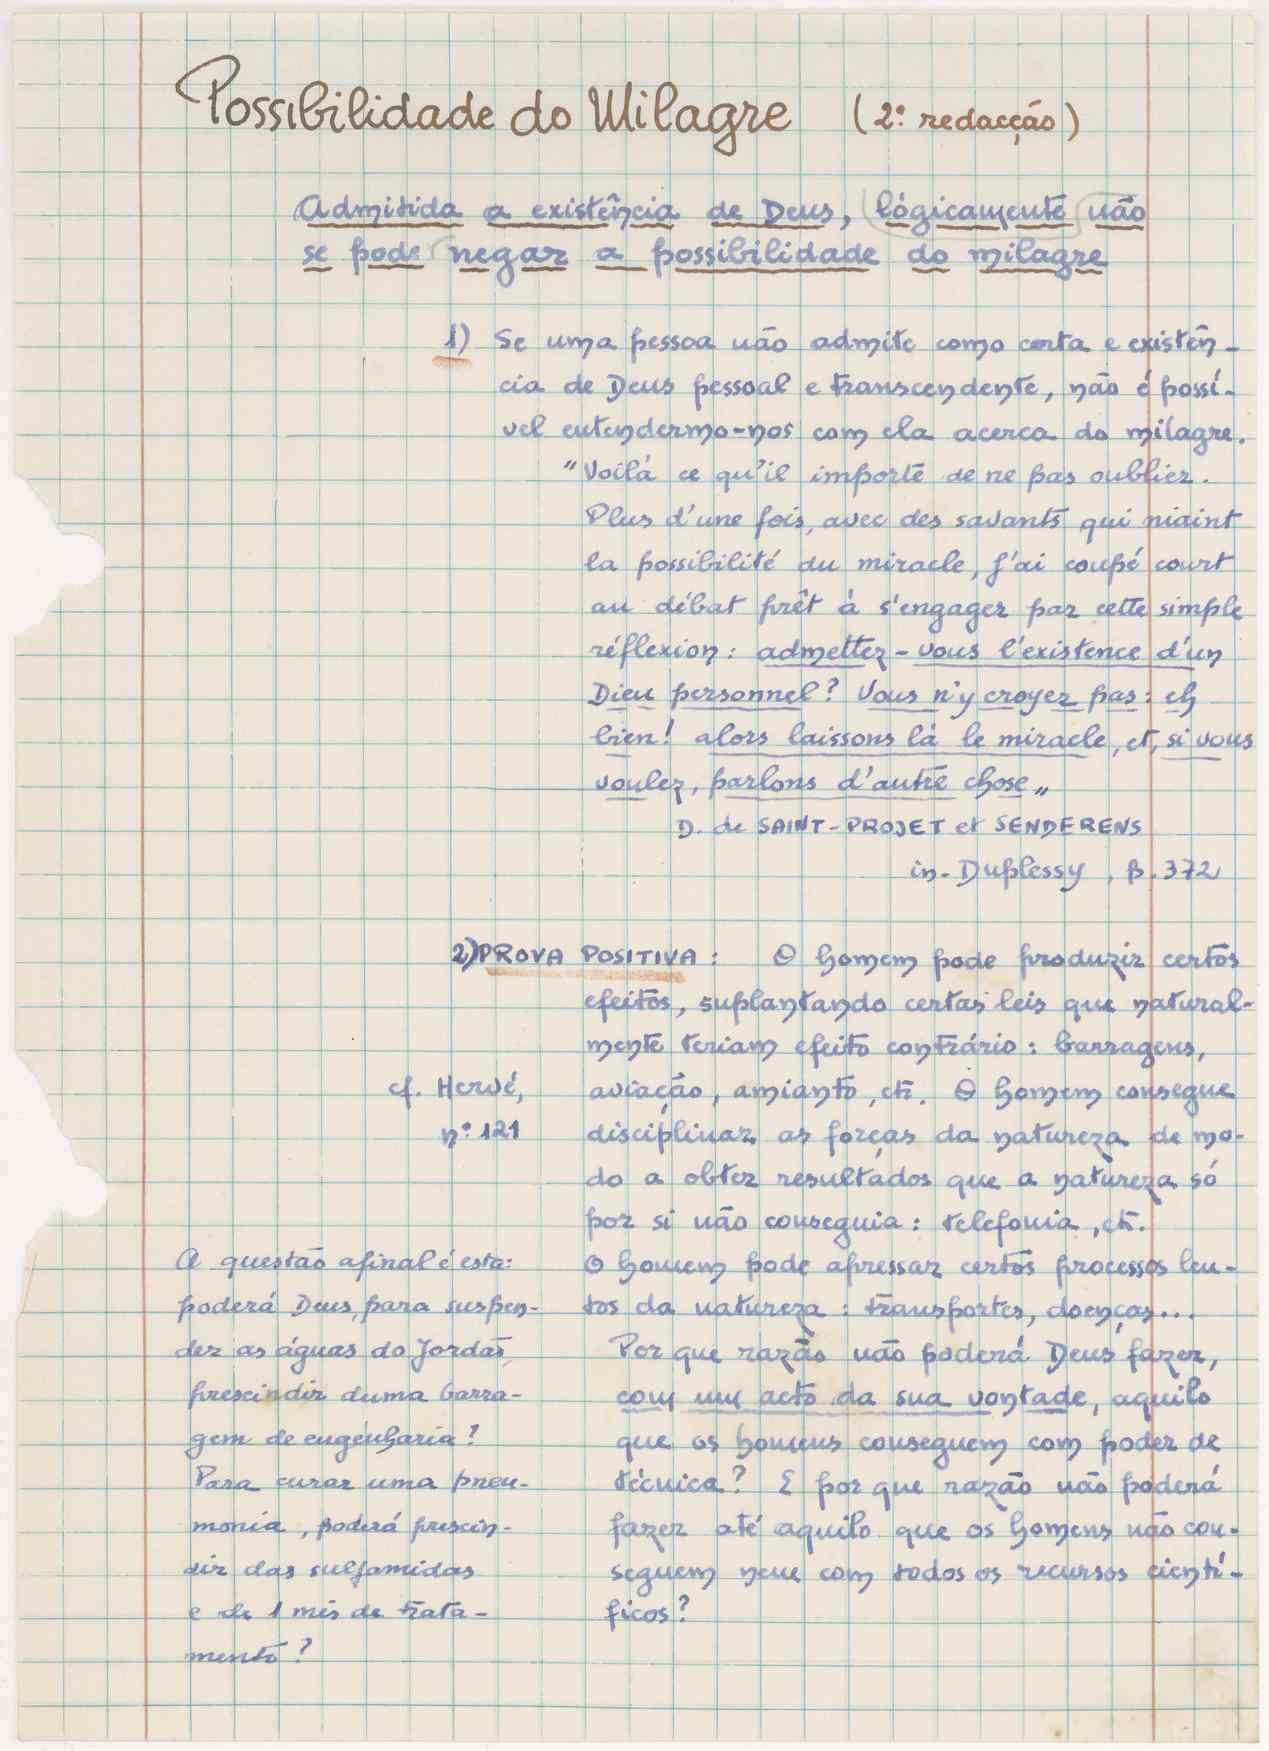 Possibilidade do Milagre (2ª redacção)
Admitida a existência de Deus, lógicamente não
se pode negar a possibilidade do milagre
1) Se uma pessoa não admite como certa e existên-
cia de Deus pessoal e transcendente, não é possí-
vel entendermo-nos com ela acerca do milagre.
"Voilá ce qu'il importe de ne pas oublier.
Plus d'une fois, avec des savants qui niaint
la possibilité du miracle, j'ai coupé court
au débat prêt à s'engager par cette simple
réflexion: admettez-vous l'existence d'un
Dieu personnel? Vous n'y croyez pas: eh
bien! alors laissons là le miracle, et, si vous
voulez, parlons d'autre chose„
D. de SAINT-PROJET et SENDERENS
in. Duplessy, p. 372
2) PROVA POSITIVA: O homem pode produzir certos
efeitos, suplantando certas leis que natural-
mente teriam efeito contrário: barragens,
aviação, amianto, etc. O homem consegue
disciplinar as forças da natureza de mo-
do a obter resultados que a natureza só
por si não conseguia: telefonia, etc.
O homem pode apressar certos processos len-
tos da natureza: transportes, doenças...
Por que razão não poderá Deus fazer,
com um acto da sua vontade, aquilo
que os homens conseguem com poder de
técnica? E por que razão não poderá
fazer até aquilo que os homens não con-
seguem nem com todos os recursos cientí-
ficos?
cf. Hervé,
nº 121
A questão afinal é esta:
poderá Deus, para suspen-
der as águas do Jordão,
prescindir duma barra-
gem de engenharia?
Para curar uma pneu-
monia, poderá prescin-
dir das sulfamidas
e de 1 mês de trata-
mento?